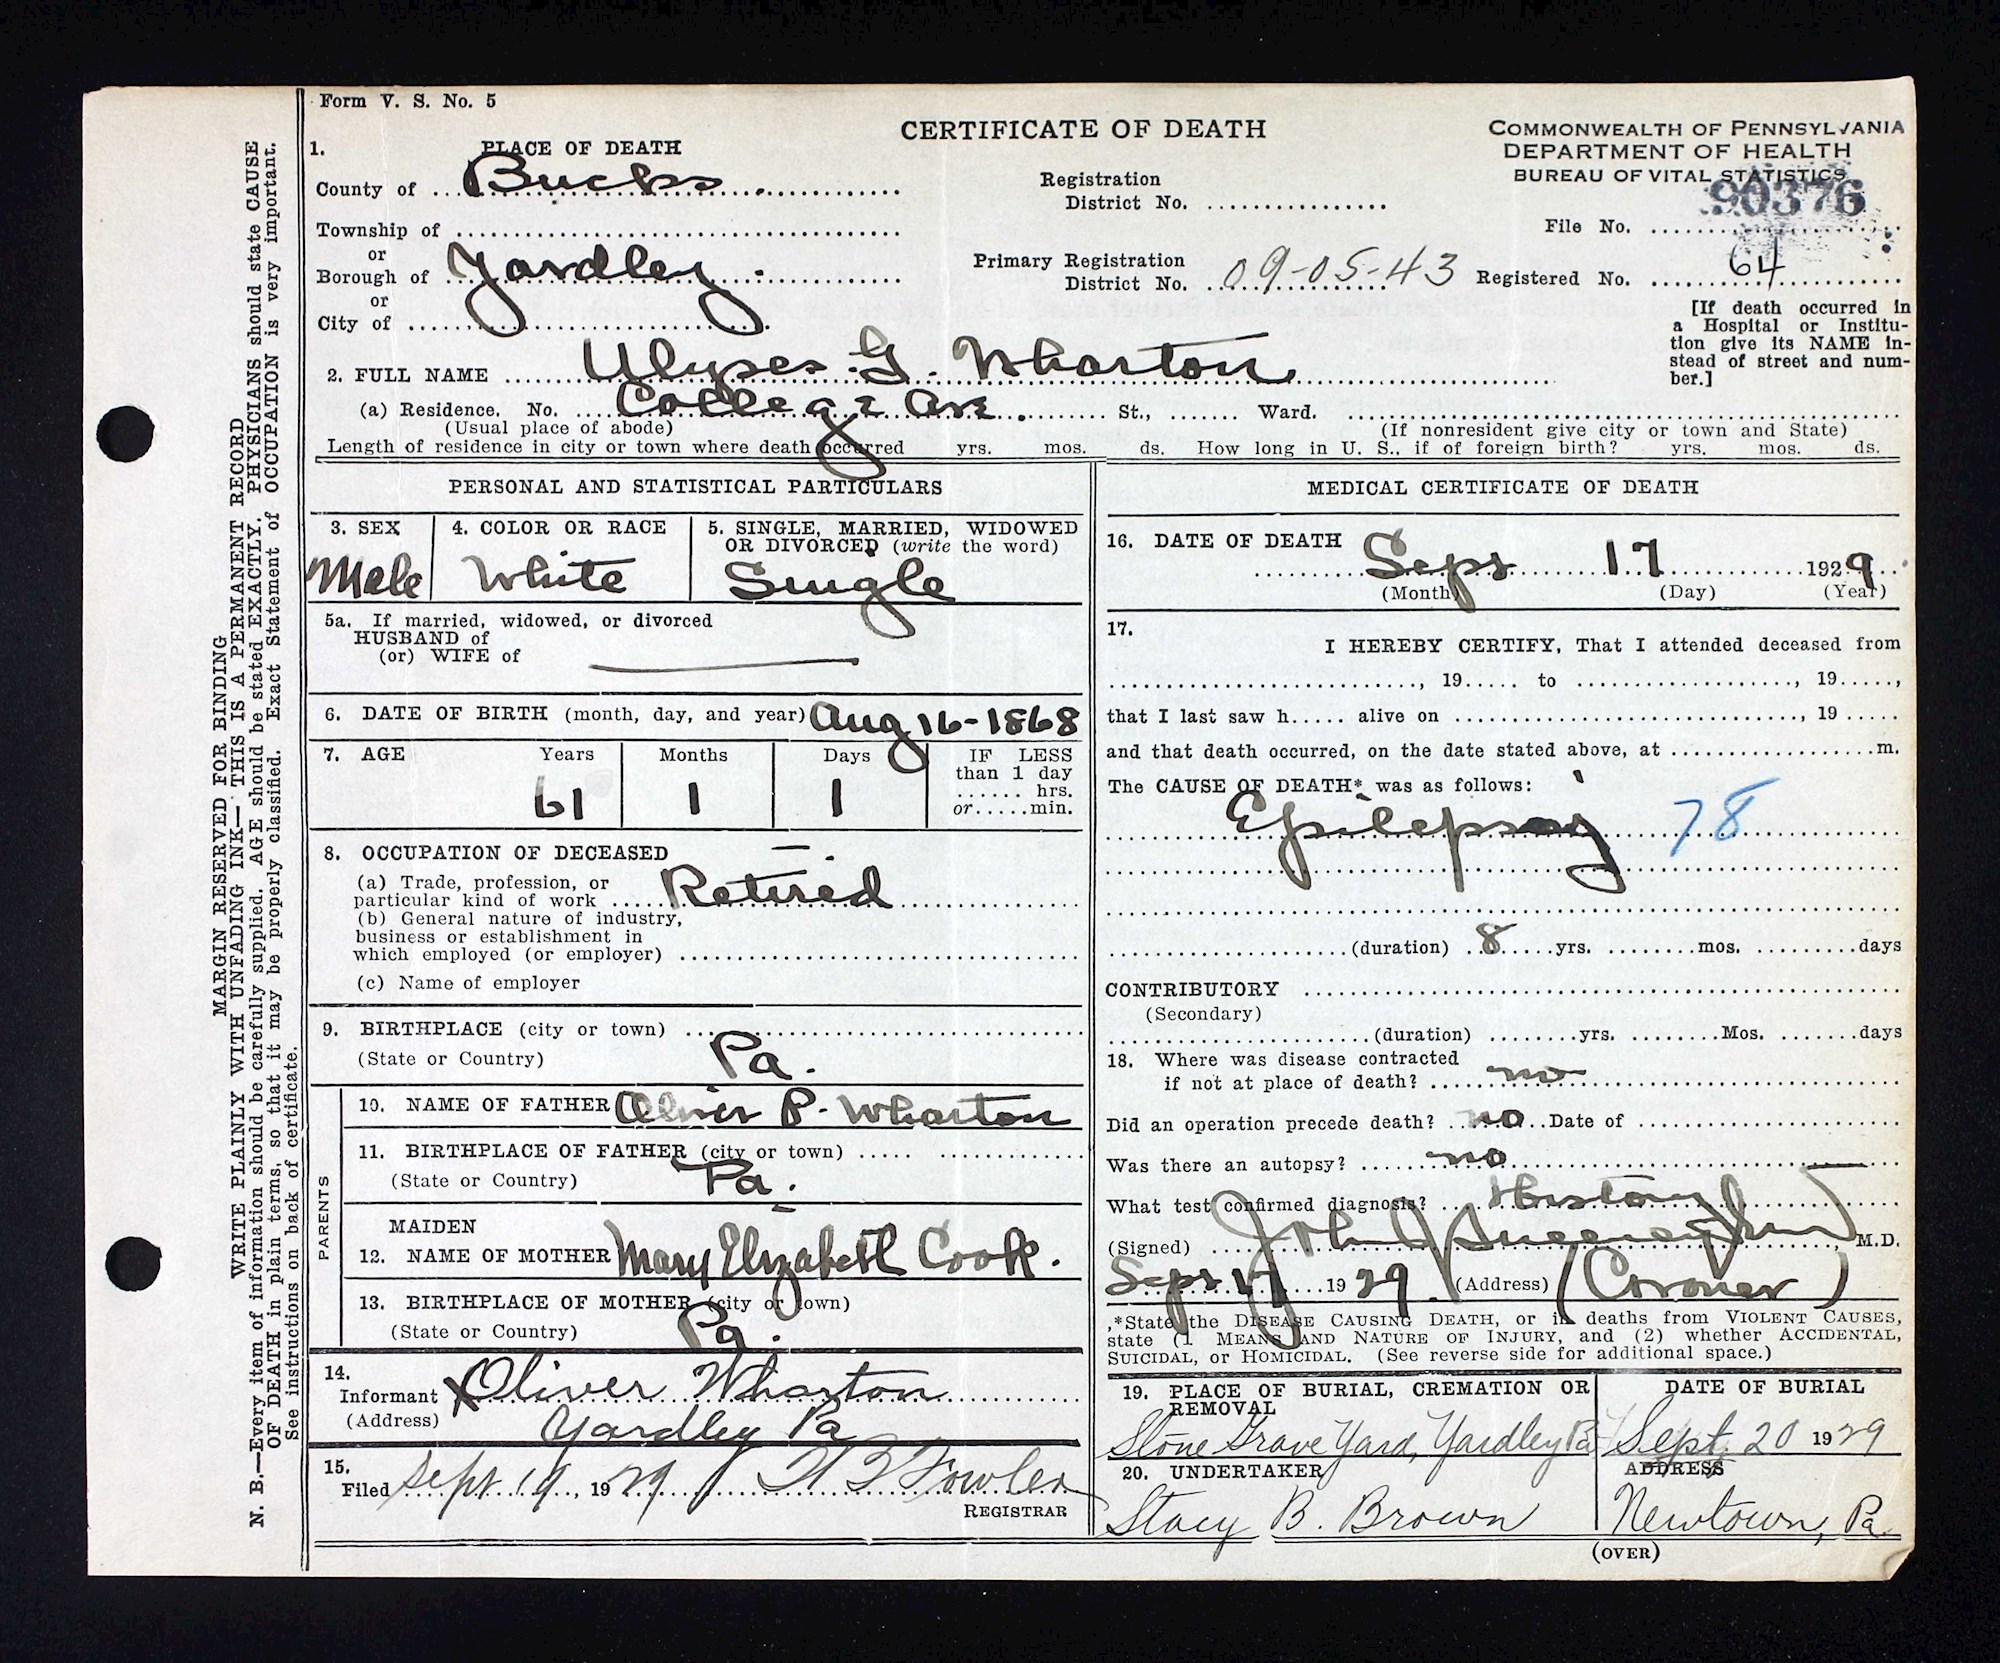 Form V. S. No. 5
CERTIFICATE OF DEATH
COMMONWEALTH OF PENNSYLVANIA
DEPARTMENT OF HEALTH
BUREAU OF VITAL STATISTICS
1. PLACE OF DEATH
County of Bucks.
Registration
District No.
90376
File No.
Township of
or
Borough of Yardley.
Primary Registration
District No. 09-05-43
Registered No. 64
or
City of
[If death occurred in
a Hospital or Institu-
tion give its NAME in-
stead of street and num-
ber.]
2. FULL NAME Ulyses G. Wharton
(a) Residence. No. College Ave. St., Ward.
(Usual place of abode) (If nonresident give city or town and State)
Length of residence in city or town where death occurred yrs. mos. ds. How long in U. S., if of foreign birth? yrs. mos. ds.
PERSONAL AND STATISTICAL PARTICULARS
3. SEX
Male
4. COLOR OR RACE
White
5. SINGLE, MARRIED, WIDOWED
OR DIVORCED (write the word)
Single
5a. If married, widowed, or divorced
HUSBAND of
(or) WIFE of
6. DATE OF BIRTH (month, day, and year) Aug 16-1868
7. AGE Years Months Days
61 1 1
IF LESS
than 1 day
hrs.
or min.
8. OCCUPATION OF DECEASED
(a) Trade, profession, or
particular kind of work Retired
(b) General nature of industry,
business or establishment in
which employed (or employer)
(c) Name of employer
9. BIRTHPLACE (city or town)
(State or Country) Pa.
PARENTS
10. NAME OF FATHER Oliver P. Wharton
11. BIRTHPLACE OF FATHER (city or town)
(State or Country) Pa.
MAIDEN
12. NAME OF MOTHER Mary Elizabeth Cook.
13. BIRTHPLACE OF MOTHER (city or town)
(State or Country) Pa.
14.
Informant X Oliver Wharton
(Address) Yardley Pa
15.
Filed Sept 19, 1929 Fowler
REGISTRAR
MEDICAL CERTIFICATE OF DEATH
16. DATE OF DEATH
Sept 17 1929
(Month) (Day) (Year)
17.
I HEREBY CERTIFY, That I attended deceased from
, 19 to , 19 ,
that I last saw h alive on , 19
and that death occurred, on the date stated above, at m.
The CAUSE OF DEATH* was as follows:
Epilepsy 78
(duration) 8 yrs. mos. days
CONTRIBUTORY
(Secondary)
(duration) yrs. Mos. days
18. Where was disease contracted
if not at place of death? no
Did an operation precede death? no Date of
Was there an autopsy? no
What test confirmed diagnosis? History
(Signed) John J M.D.
Sept 17 1929. (Address) (Coroner)
*State the DISEASE CAUSING DEATH, or in deaths from VIOLENT CAUSES,
state (1 MEANS AND NATURE OF INJURY, and (2) whether ACCIDENTAL,
SUICIDAL, or HOMICIDAL. (See reverse side for additional space.)
19. PLACE OF BURIAL, CREMATION OR
REMOVAL
Stone Grave Yard, Yardley Pa
DATE OF BURIAL
Sept, 20 1929
20. UNDERTAKER
Stacy B. Brown
ADDRESS
Newtown, Pa
(OVER)
MARGIN RESERVED FOR BINDING
WRITE PLAINLY WITH UNFADING INK—THIS IS A PERMANENT RECORD
N. B.—Every item of information should be carefully supplied. AGE should be stated EXACTLY. PHYSICIANS should state CAUSE
OF DEATH in plain terms, so that it may be properly classified. Exact Statement of OCCUPATION is very important.
See instructions on back of certificate.